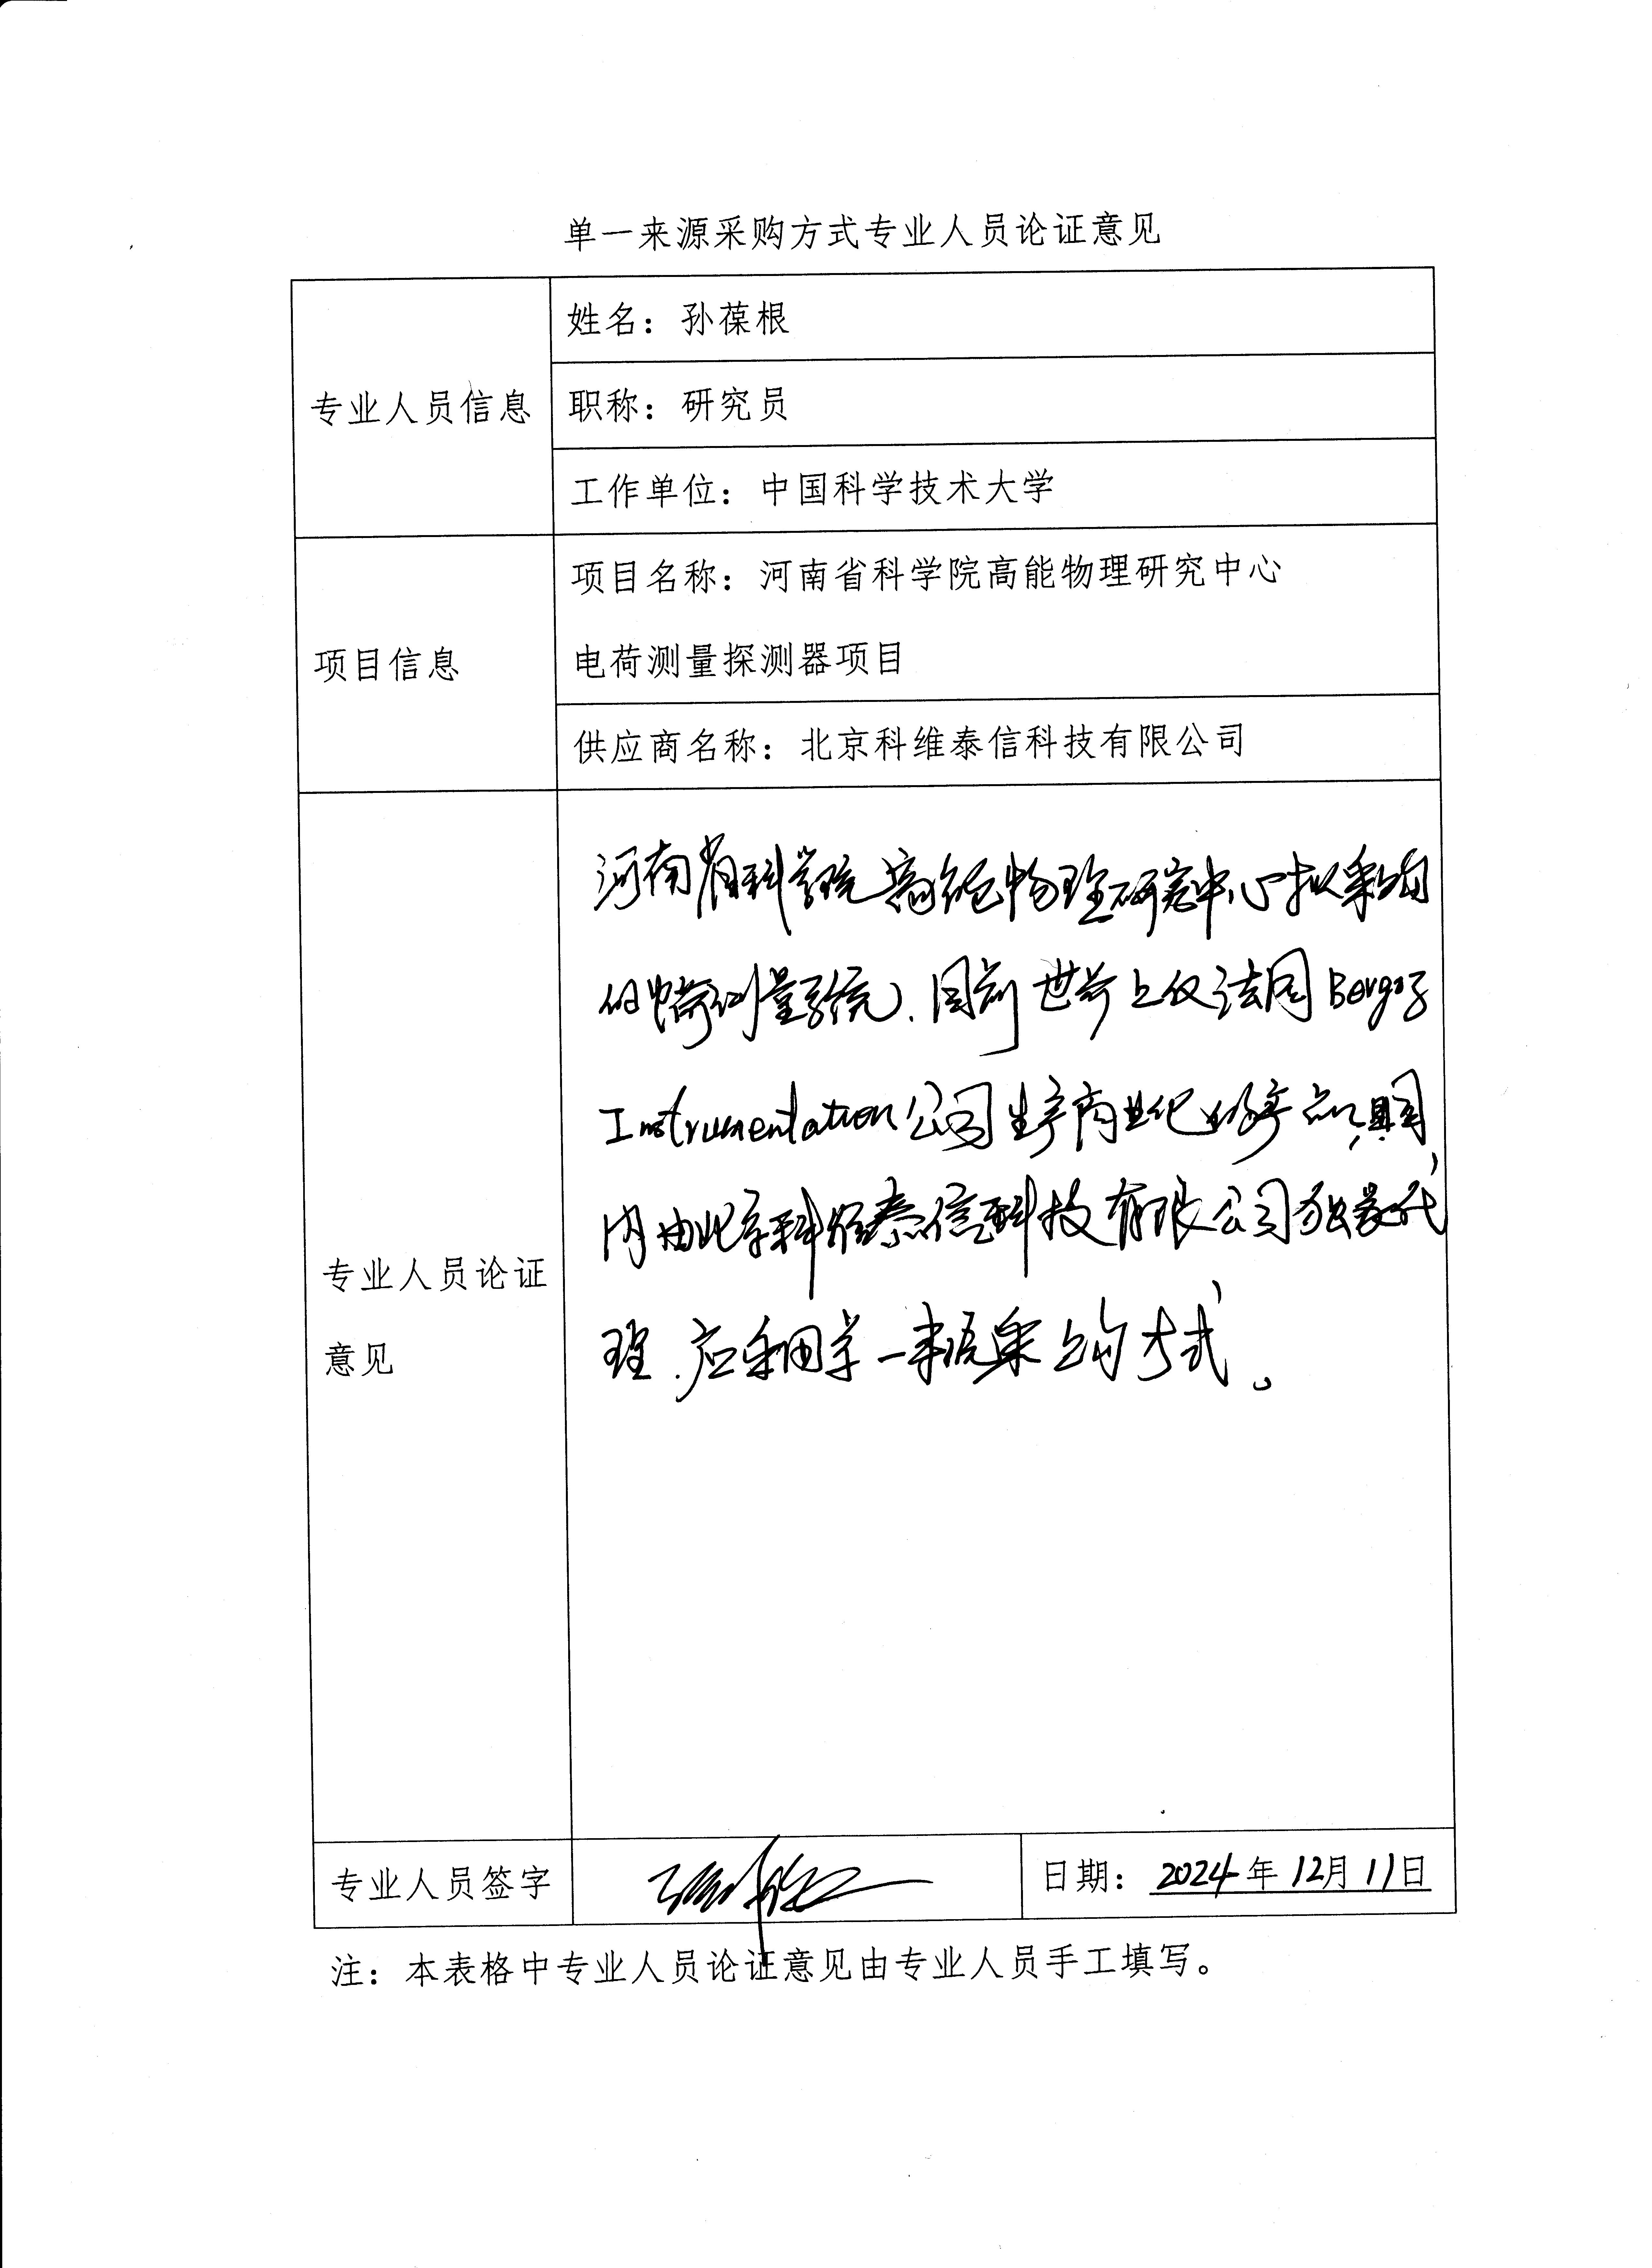 单一来源采购方式专业人员论证意见
专业人员信息
姓名：孙葆根
职称：研究员
工作单位：中国科学技术大学
项目信息
项目名称：河南省科学院高能物理研究中心
电荷测量探测器项目
供应商名称：北京科维泰信科技有限公司
专业人员论证
意见
河南省科学院高能物理研究中心拟采购
的电荷测量系统，目前世界上仅法国Bergoz
Instrumentation公司生产商业化的产品，且国
内由北京科维泰信科技有限公司独家代
理，应采用单一来源采购方式。
专业人员签字
日期：2024年12月11日
注：本表格中专业人员论证意见由专业人员手工填写。